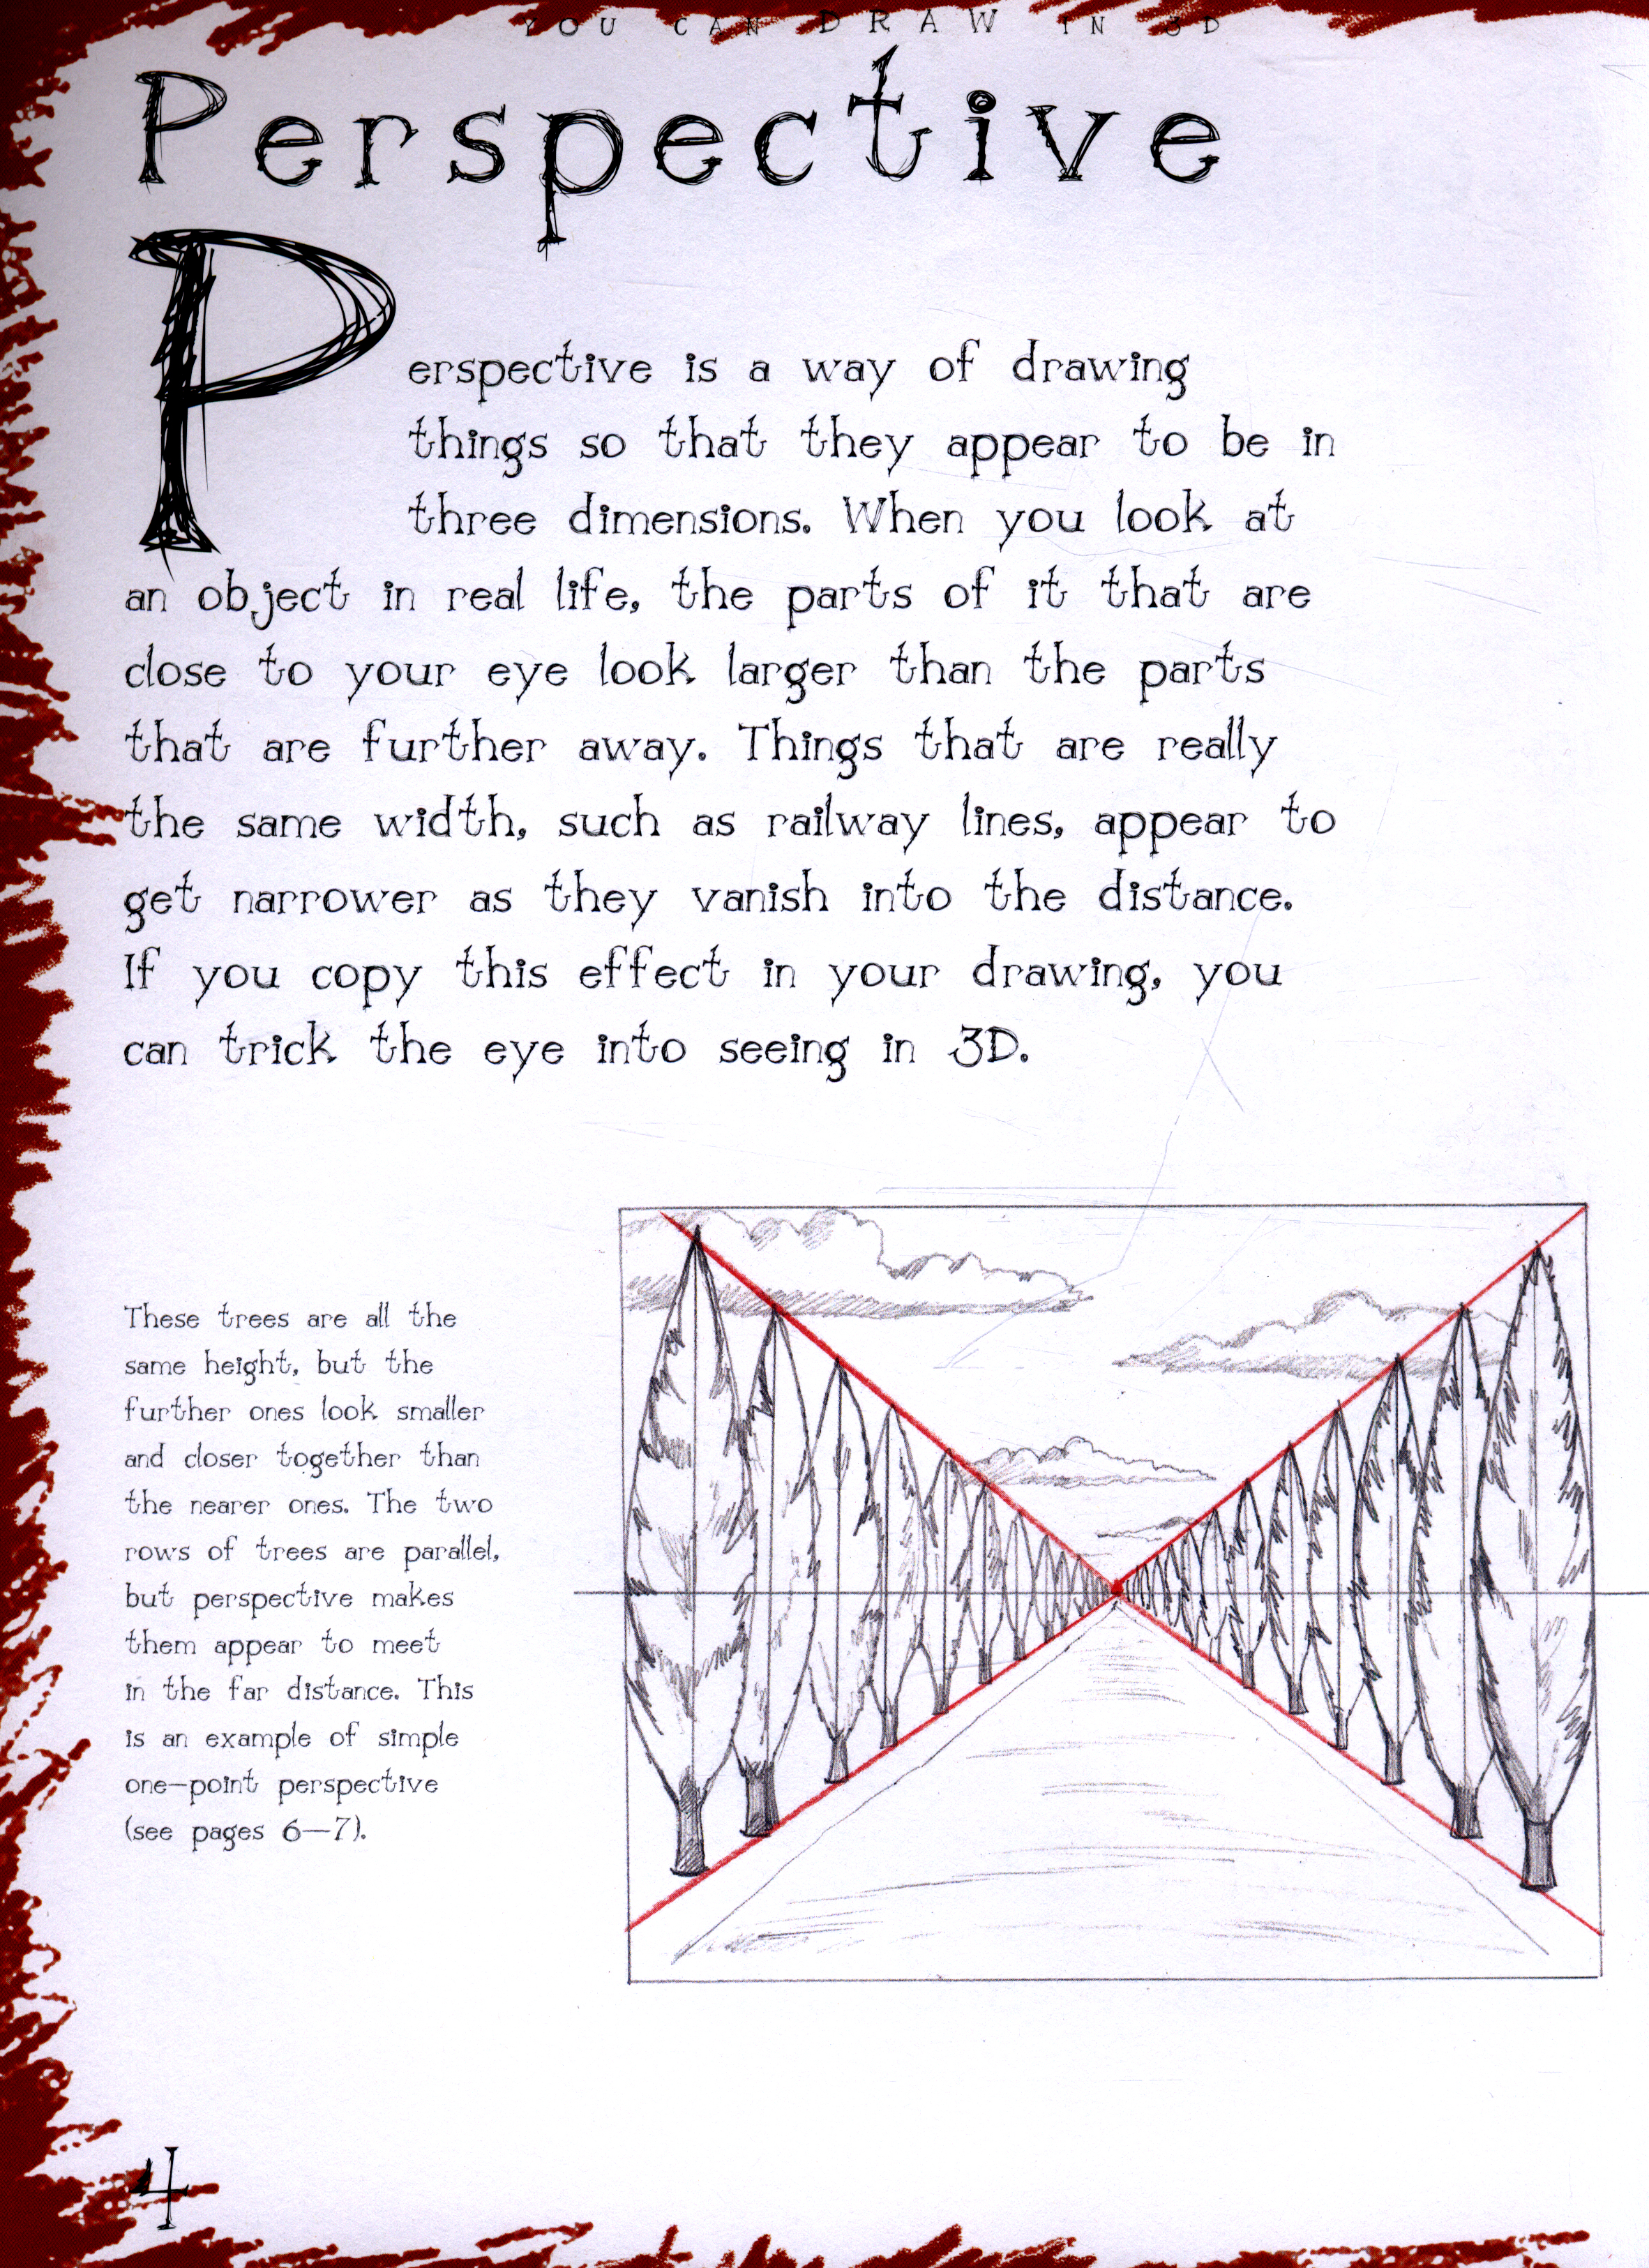 YOU CAN DRAW IN 3D
Perspective
Perspective is a way of drawing
things so that they appear to be in
three dimensions. When you look at
an object in real life, the parts of it that are
close to your eye look larger than the parts
that are further away. Things that are really
the same width, such as railway lines, appear to
get narrower as they vanish into the distance.
If you copy this effect in your drawing, you
can trick the eye into seeing in 3D.
These trees are all the
same height, but the
further ones look smaller
and closer together than
the nearer ones. The two
rows of trees are parallel,
but perspective makes
them appear to meet
in the far distance. This
is an example of simple
one-point perspective
(see pages 6–7).
4